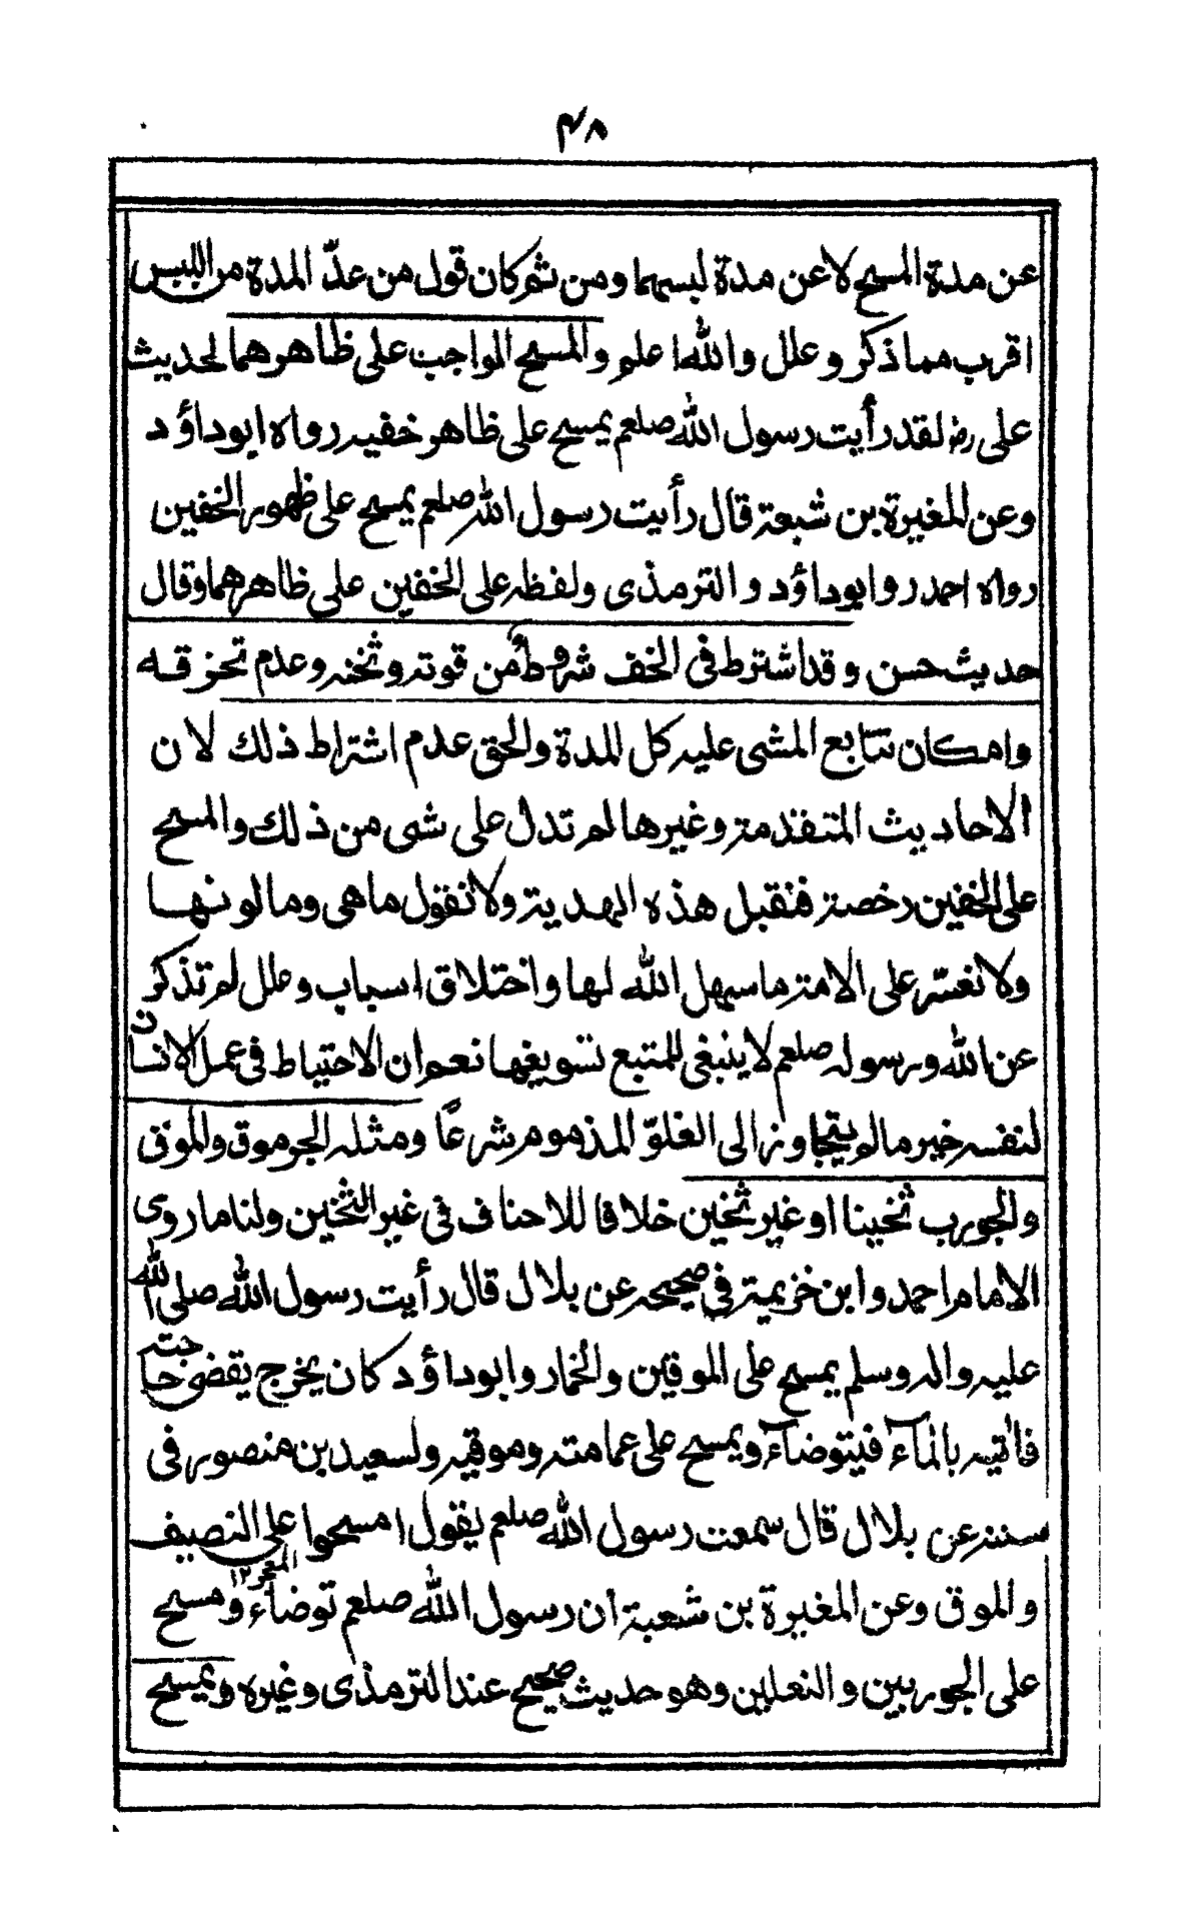 ۴۸
عن مدة المسح لا عن مدة لبسهما ومن ثم كان قول من عدّ المدة من اللبس
اقرب مما ذكر وعلل والله اعلم والمسح الواجب على ظاهرهما لحديث
على رض لقد رأيت رسول الله صلعم يمسح على ظاهر خفيه رواه ابوداؤد
وعن المغيرة بن شعبة قال رأيت رسول الله صلعم يمسح على ظهور الخفين
رواه احمد وابوداؤد والترمذى ولفظه على الخفين على ظاهرهما وقال
حديث حسن وقد اشترط فى الخف شروط من قوته وثخنه وعدم تخرقه
وامكان تتابع المشى عليه كل المدة والحق عدم اشتراط ذلك لان
الاحاديث المتقدمة وغيرها لم تدل على شى من ذلك والمسح
على الخفين رخصة فنقبل هذه الهدية ولا نقول ماهى ومالونها
ولا نعسّر على الامة ما سهل الله لها واختلاق اسباب وعلل لم تذكر
عن الله ورسوله صلعم لا ينبغى للمتبع تسويغها نعم ان الاحتياط فى عمل الانسان
لنفسه خير مالم يتجاوز الى الغلوّ المذموم شرعًا ومثله الجرموق والموق
والجورب ثخينا او غير ثخين خلافا للاحناف فى غير الثخين ولنا ماروى
الامام احمد وابن خزيمة فى صحيحه عن بلال قال رأيت رسول الله صلى الله
عليه واله وسلم يمسح على الموقين والخمار وابوداؤد كان يخرج يقضى حاجته
فاتيه بالماء فيتوضاء ويمسح على عمامته وموقيه ولسعيد بن منصور فى
سننه عن بلال قال سمعت رسول الله صلعم يقول امسحوا على النصيف
المعجر ١٢
والموق وعن المغيرة بن شعبة ان رسول الله صلعم توضاء ومسح
على الجوربين والنعلين وهو حديث صحيح عند الترمذى وغيره ويمسح